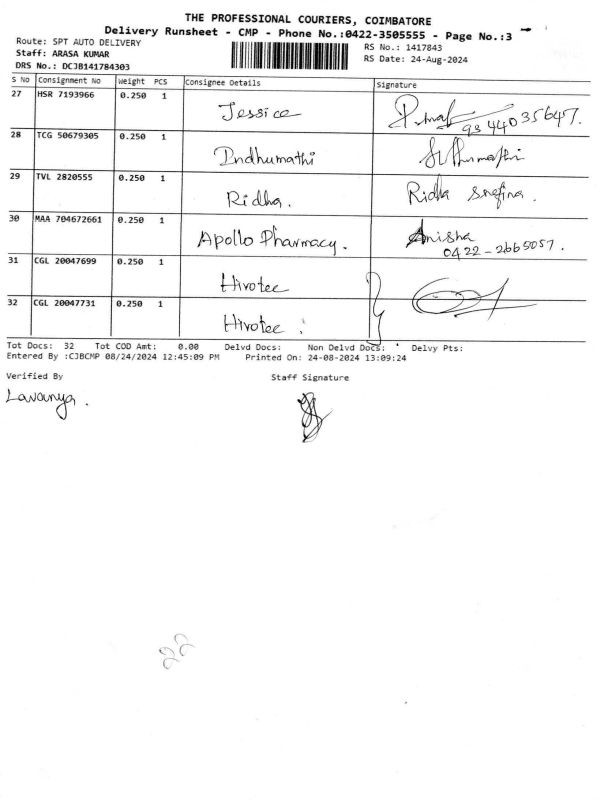 THE PROFESSIONAL COURIERS, COIMBATORE
Delivery Runsheet - CMP - Phone No.:0422-3505555 - Page No.:3
Route: SPT AUTO DELIVERY
RS No.: 1417843
Staff: ARASA KUMAR
RS Date: 24-Aug-2024
DRS No.: DCJB141784303
S No Consignment No Weight PCS Consignee Details Signature
27 HSR 7193966 0.250 1 Jessica
9344035647.
28 TCG 50679305 0.250 1 Indhumathi
29 TVL 2820555 0.250 1 Ridha. Ridha
30 MAA 704672661 0.250 1 Apollo Pharmacy. Anisha
0422-2665057.
31 CGL 20047699 0.250 1 Hivotec
32 CGL 20047731 0.250 1 Hivotec
Tot Docs: 32 Tot COD Amt: 0.00 Delvd Docs: Non Delvd Docs: Delvy Pts:
Entered By :CJBCMP 08/24/2024 12:45:09 PM Printed On: 24-08-2024 13:09:24
Verified By Staff Signature
Lavanya.
22